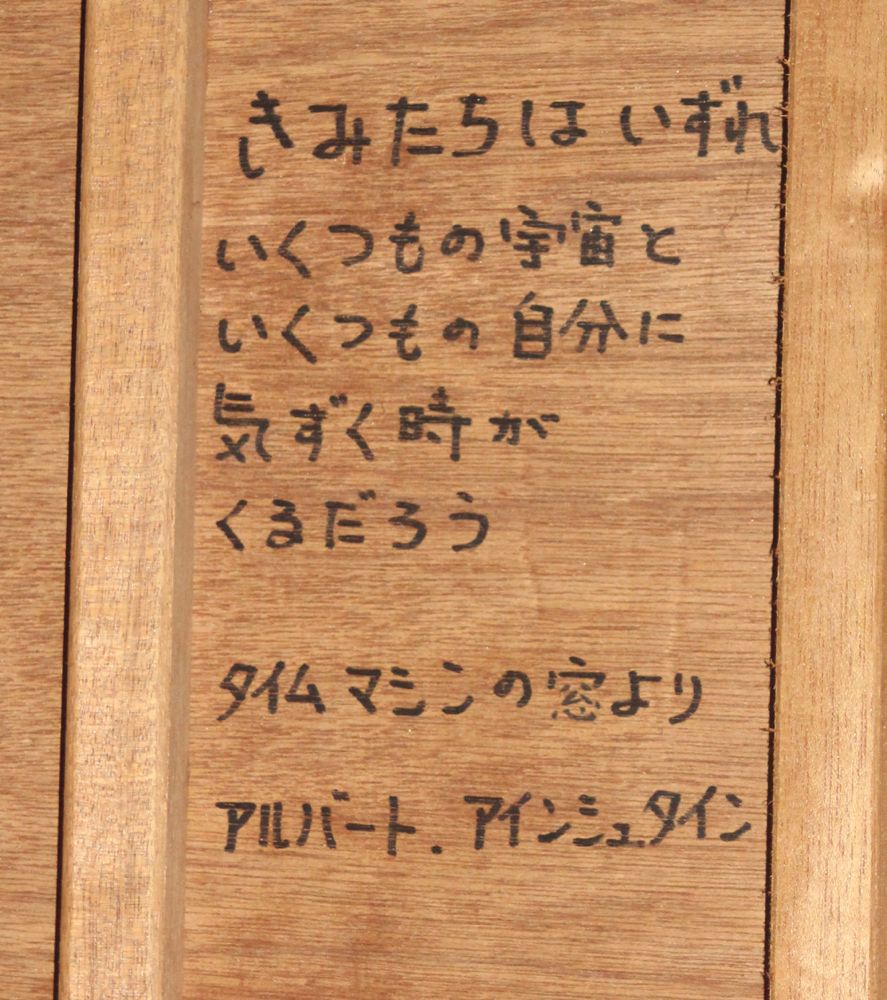 きみたちはいずれ
いくつもの宇宙と
いくつもの自分に
気ずく時が
くるだろう
タイムマシンの窓より
アルバート.アインシュタイン